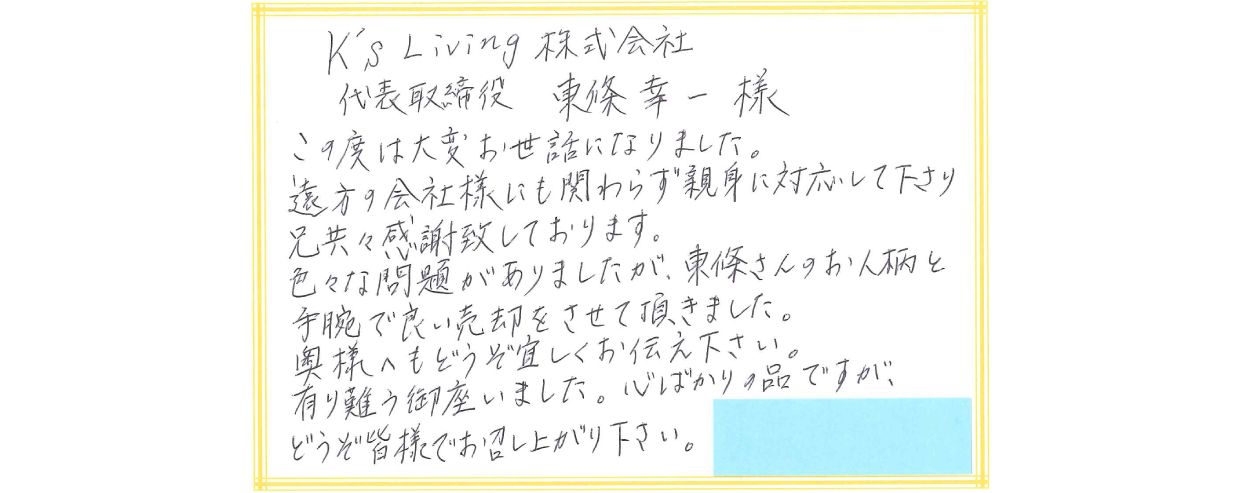 K's Living 株式会社
代表取締役 東條幸一様
この度は大変お世話になりました。
遠方の会社様にも関わらず親身に対応して下さり
兄共々感謝致しております。
色々な問題がありましたが、東條さんのお人柄と
手腕で良い売却をさせて頂きました。
奥様へもどうぞ宜しくお伝え下さい。
有り難う御座いました。心ばかりの品ですが、
どうぞ皆様でお召し上がり下さい。